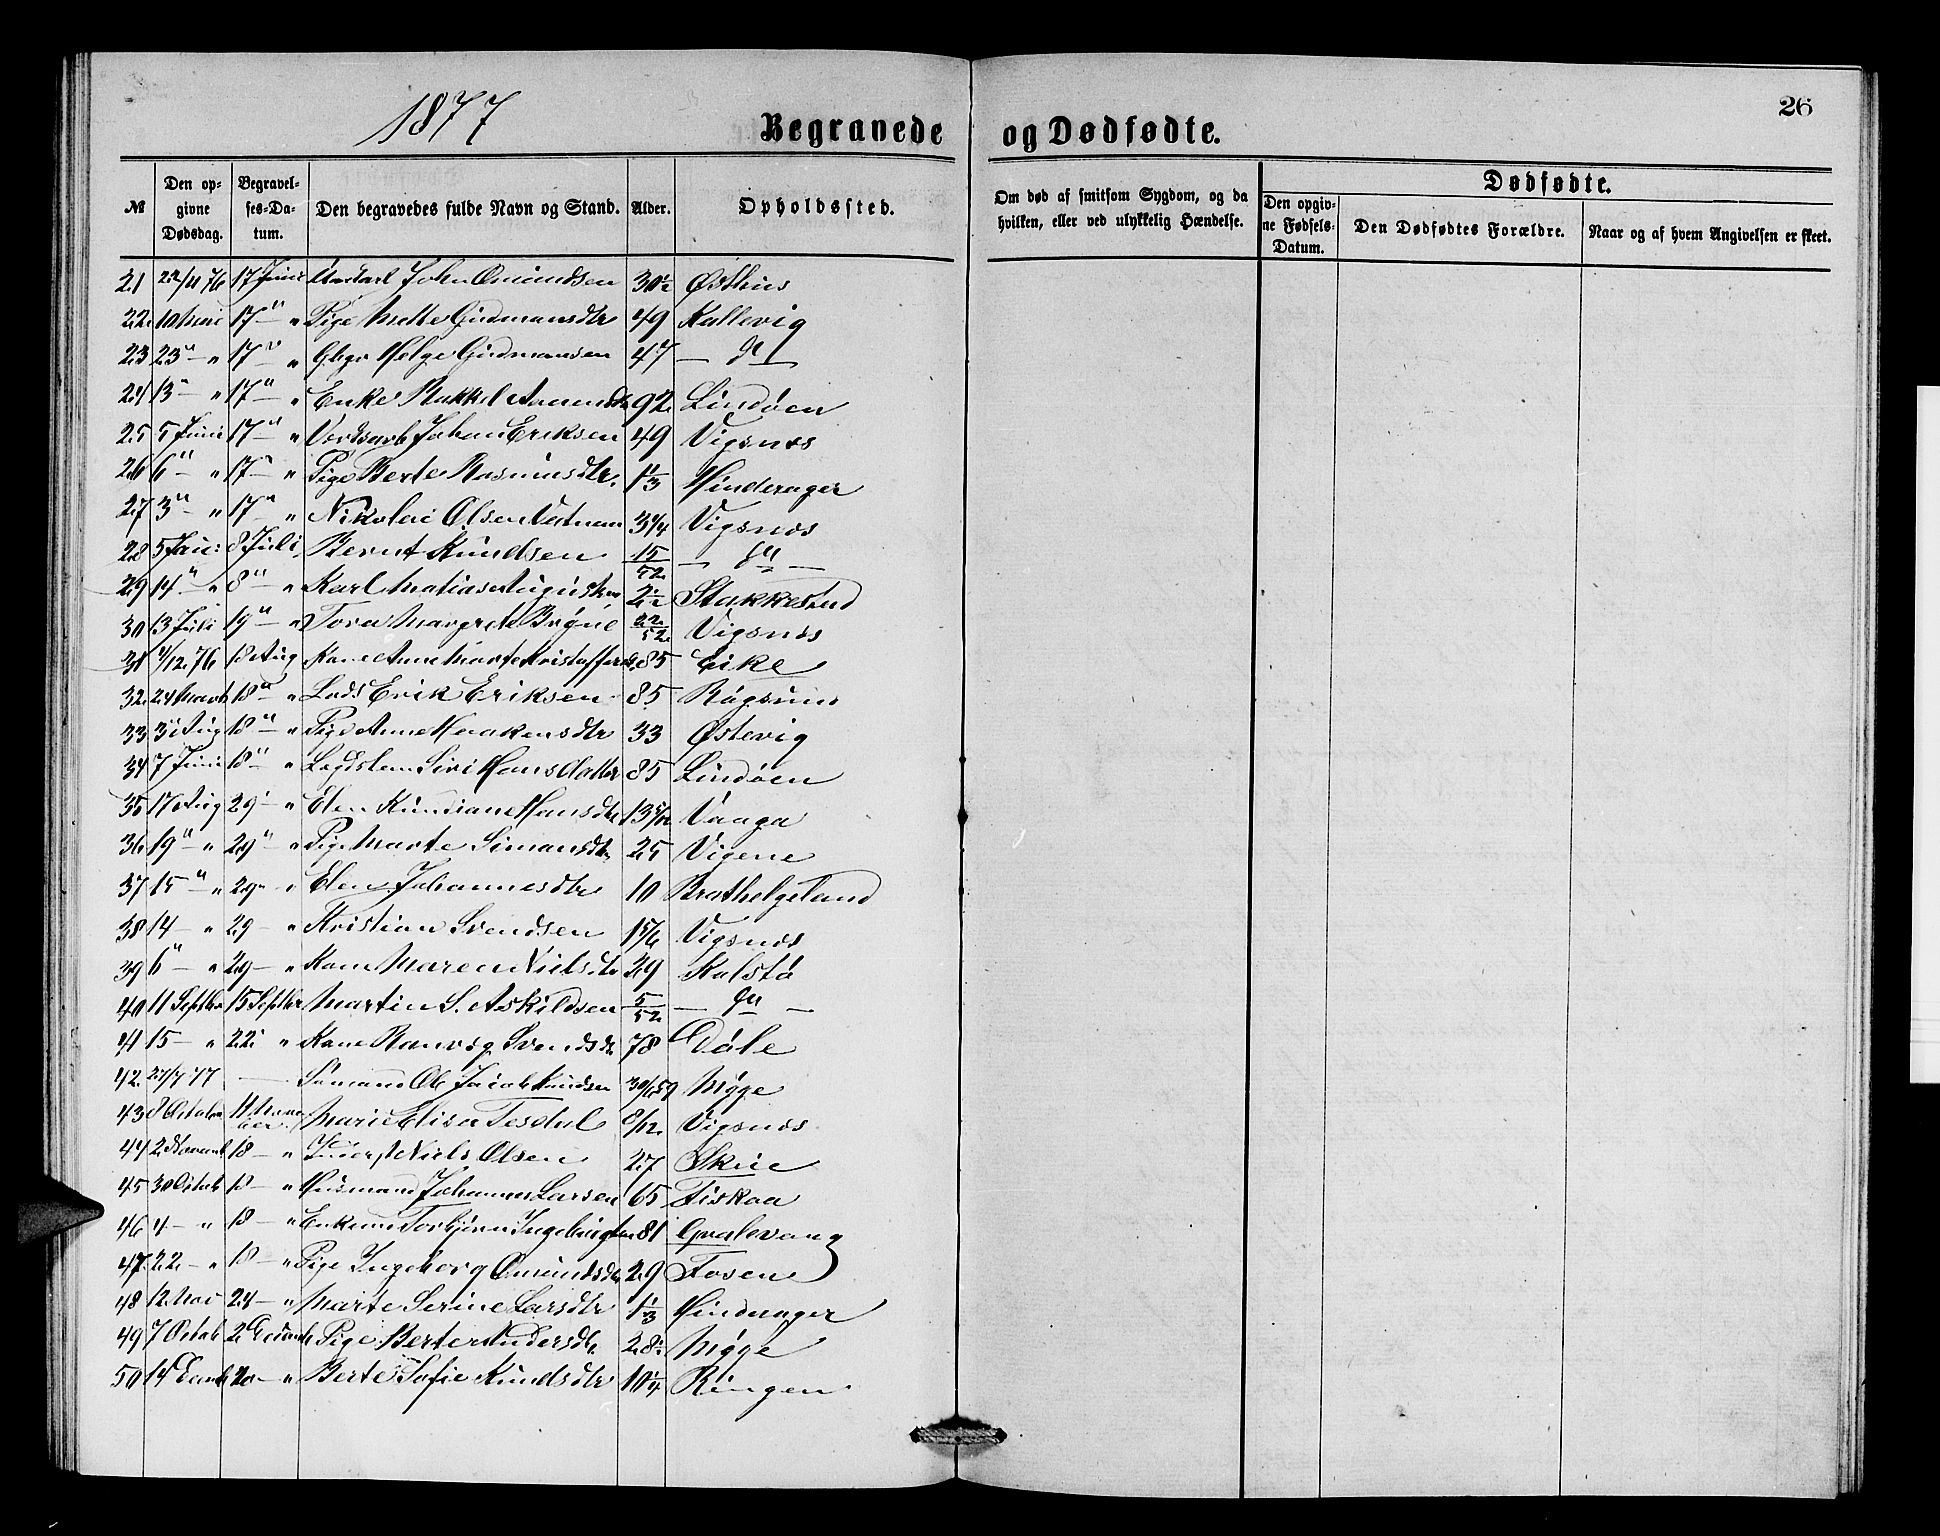 1877
26
Begravede og Dødfødte.
№ Den opgivne Dødsdag. Begravelses-Datum. Den begravedes fulde Navn og Stand. Alder. Opholdssted. Om død af smitsom Sygdom, og da hvilken, eller ved ulykkelig Hændelse. Dødfødte. Den opgivne Fødsels-Datum. Den Dødfødtes Forældre. Naar og af hvem Angivelsen er skeet.
21 22/11 76 17 Juni John Omundsen 30½ Østhus
22 10 Mai 17 " " Pige Mette Gudmansdtr 49 Kallevig
23 23 " " 17 " " Helge Gudmansen 47 — do —
24 13 " " 17 " " Enke Rakkel 92 Lindøen
25 5 Juni 17 " " Johan Eriksen 49 Vigsnes
26 6 " " 17 " " Pige Berte Rasmusdtr. 1⅓ Hinderager
27 3 " " 17 " " Nikolai Olsen 3¼ Vigsnes
28 5 8 Juli Bernt Knudsen 15/52 — do —
29 14 " " 8 " " Karl Matias Augustsen 2½ Stakkestad
30 13 Juli 19 " " Tora Margrete 22/52 Vigsnes
31 /12 76 18 Aug Kone Anne Marte Kristoffersd. 85 Eike
32 24 Marts 18 " " Lods Erik Eriksen 85 Røgsund
33 3 Aug 18 " " Pige Anne Haakensdtr 33 Østevig
34 7 Juni 18 " " Lægdslem Siri Hansdatter 85 Lindøen
35 17 Aug 29 " " Elen Hansdtr 13 Vaaga
36 19 " " 29 " " Pige Marte Simonsdtr 25 Vigene
37 15 " " 29 " " Elen Johannesdtr 10 Brathelgeland
38 14 — " 29 — " Kristian Svendsen 1 5/6 Vigsnes
39 6 " " 29 — " Kone Maren Nielsdtr 29 Kalstø
40 11 Septbr 15 Septbr Martin S. Askildsen 5/52 — do —
41 15 — " 22 " " Kone Ranveg Svendsdtr 78 Dale
42 27/7 77 — Sømand Ole Jacob Knudsen Mÿge
43 8 Octobr 11 Marie Elisa Tesdal 8/12 Vigsnes
44 2 Novemb 18 — " Niels Olsen 27 Skeie
45 30 Octob 18 — " Husmand Johannes Larsen 65 Fiskaa
46 4 — " 18 — " Enkem Torbjørn Ingebrigtsen 81 Gvalevaag
47 22 — " 18 — " Pige Ingeborg Omundsdtr 29 Fosen
48 12 Mai 24 — " Marte Serine Larsdtr 1⅓ Hinderager
49 7 Octob 2 Decemb Pige Berte Andersdtr 28½ Mÿge
50 14 Decmb 20 — " Berte Sofie Knudsdtr 10¼ Ringen